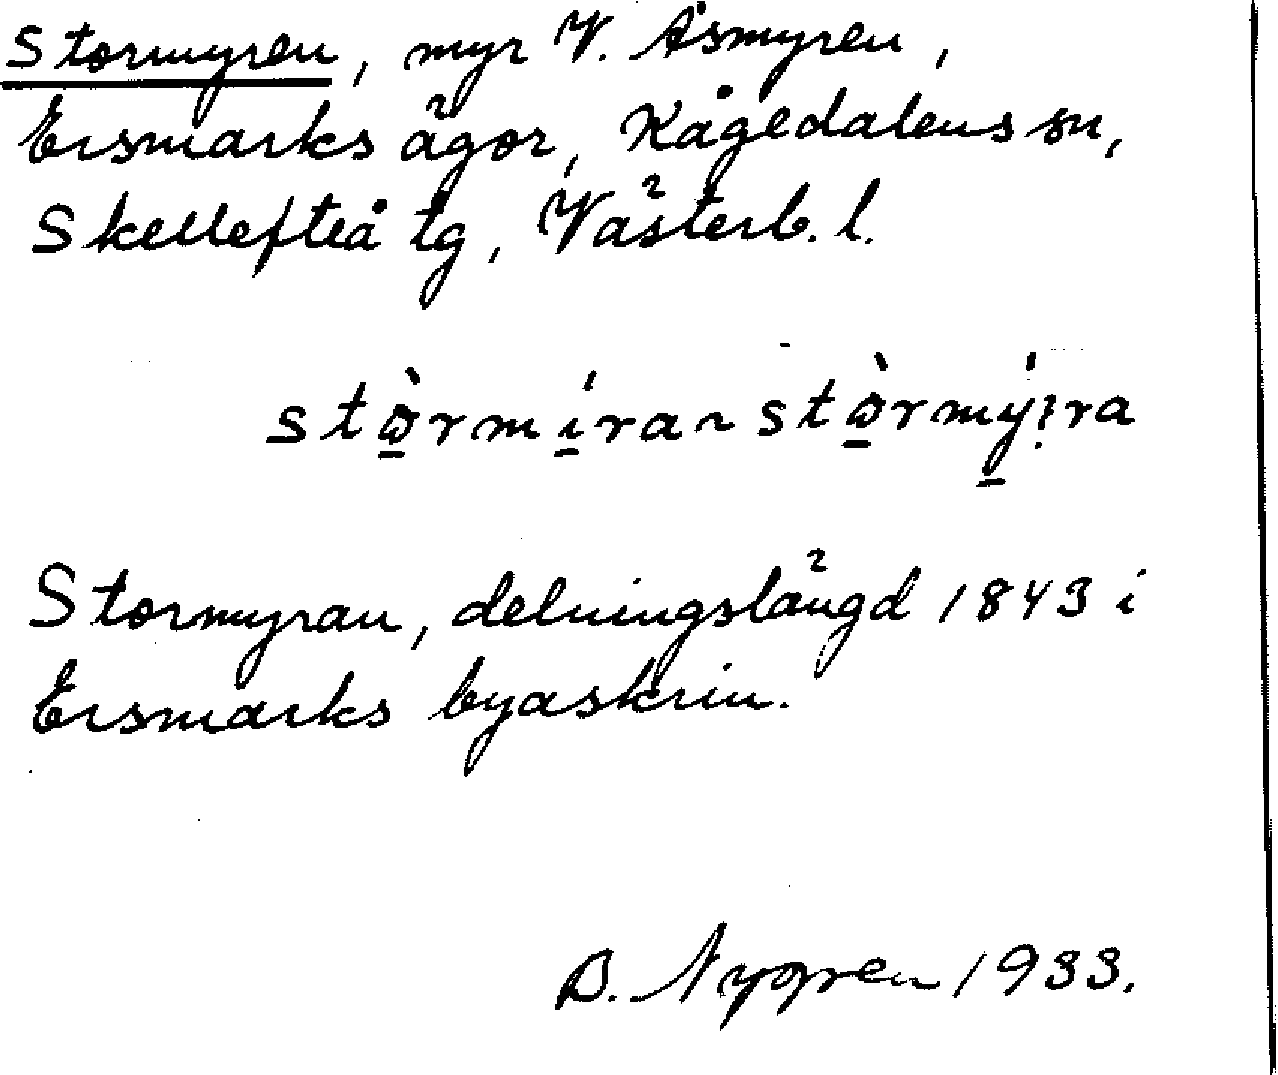 Stormyren, myr V. Åsmyren,
Ersmarks ägor, Kågedalens sn,
Skellefteå tg, Västerb. l.
stɷ̠̀rmí̠ra ~ stɷ̠̀rmý̠꞉ra
Stormyran, delningslängd 1843 i
Ersmarks byaskrin.
B. Nygren 1933.